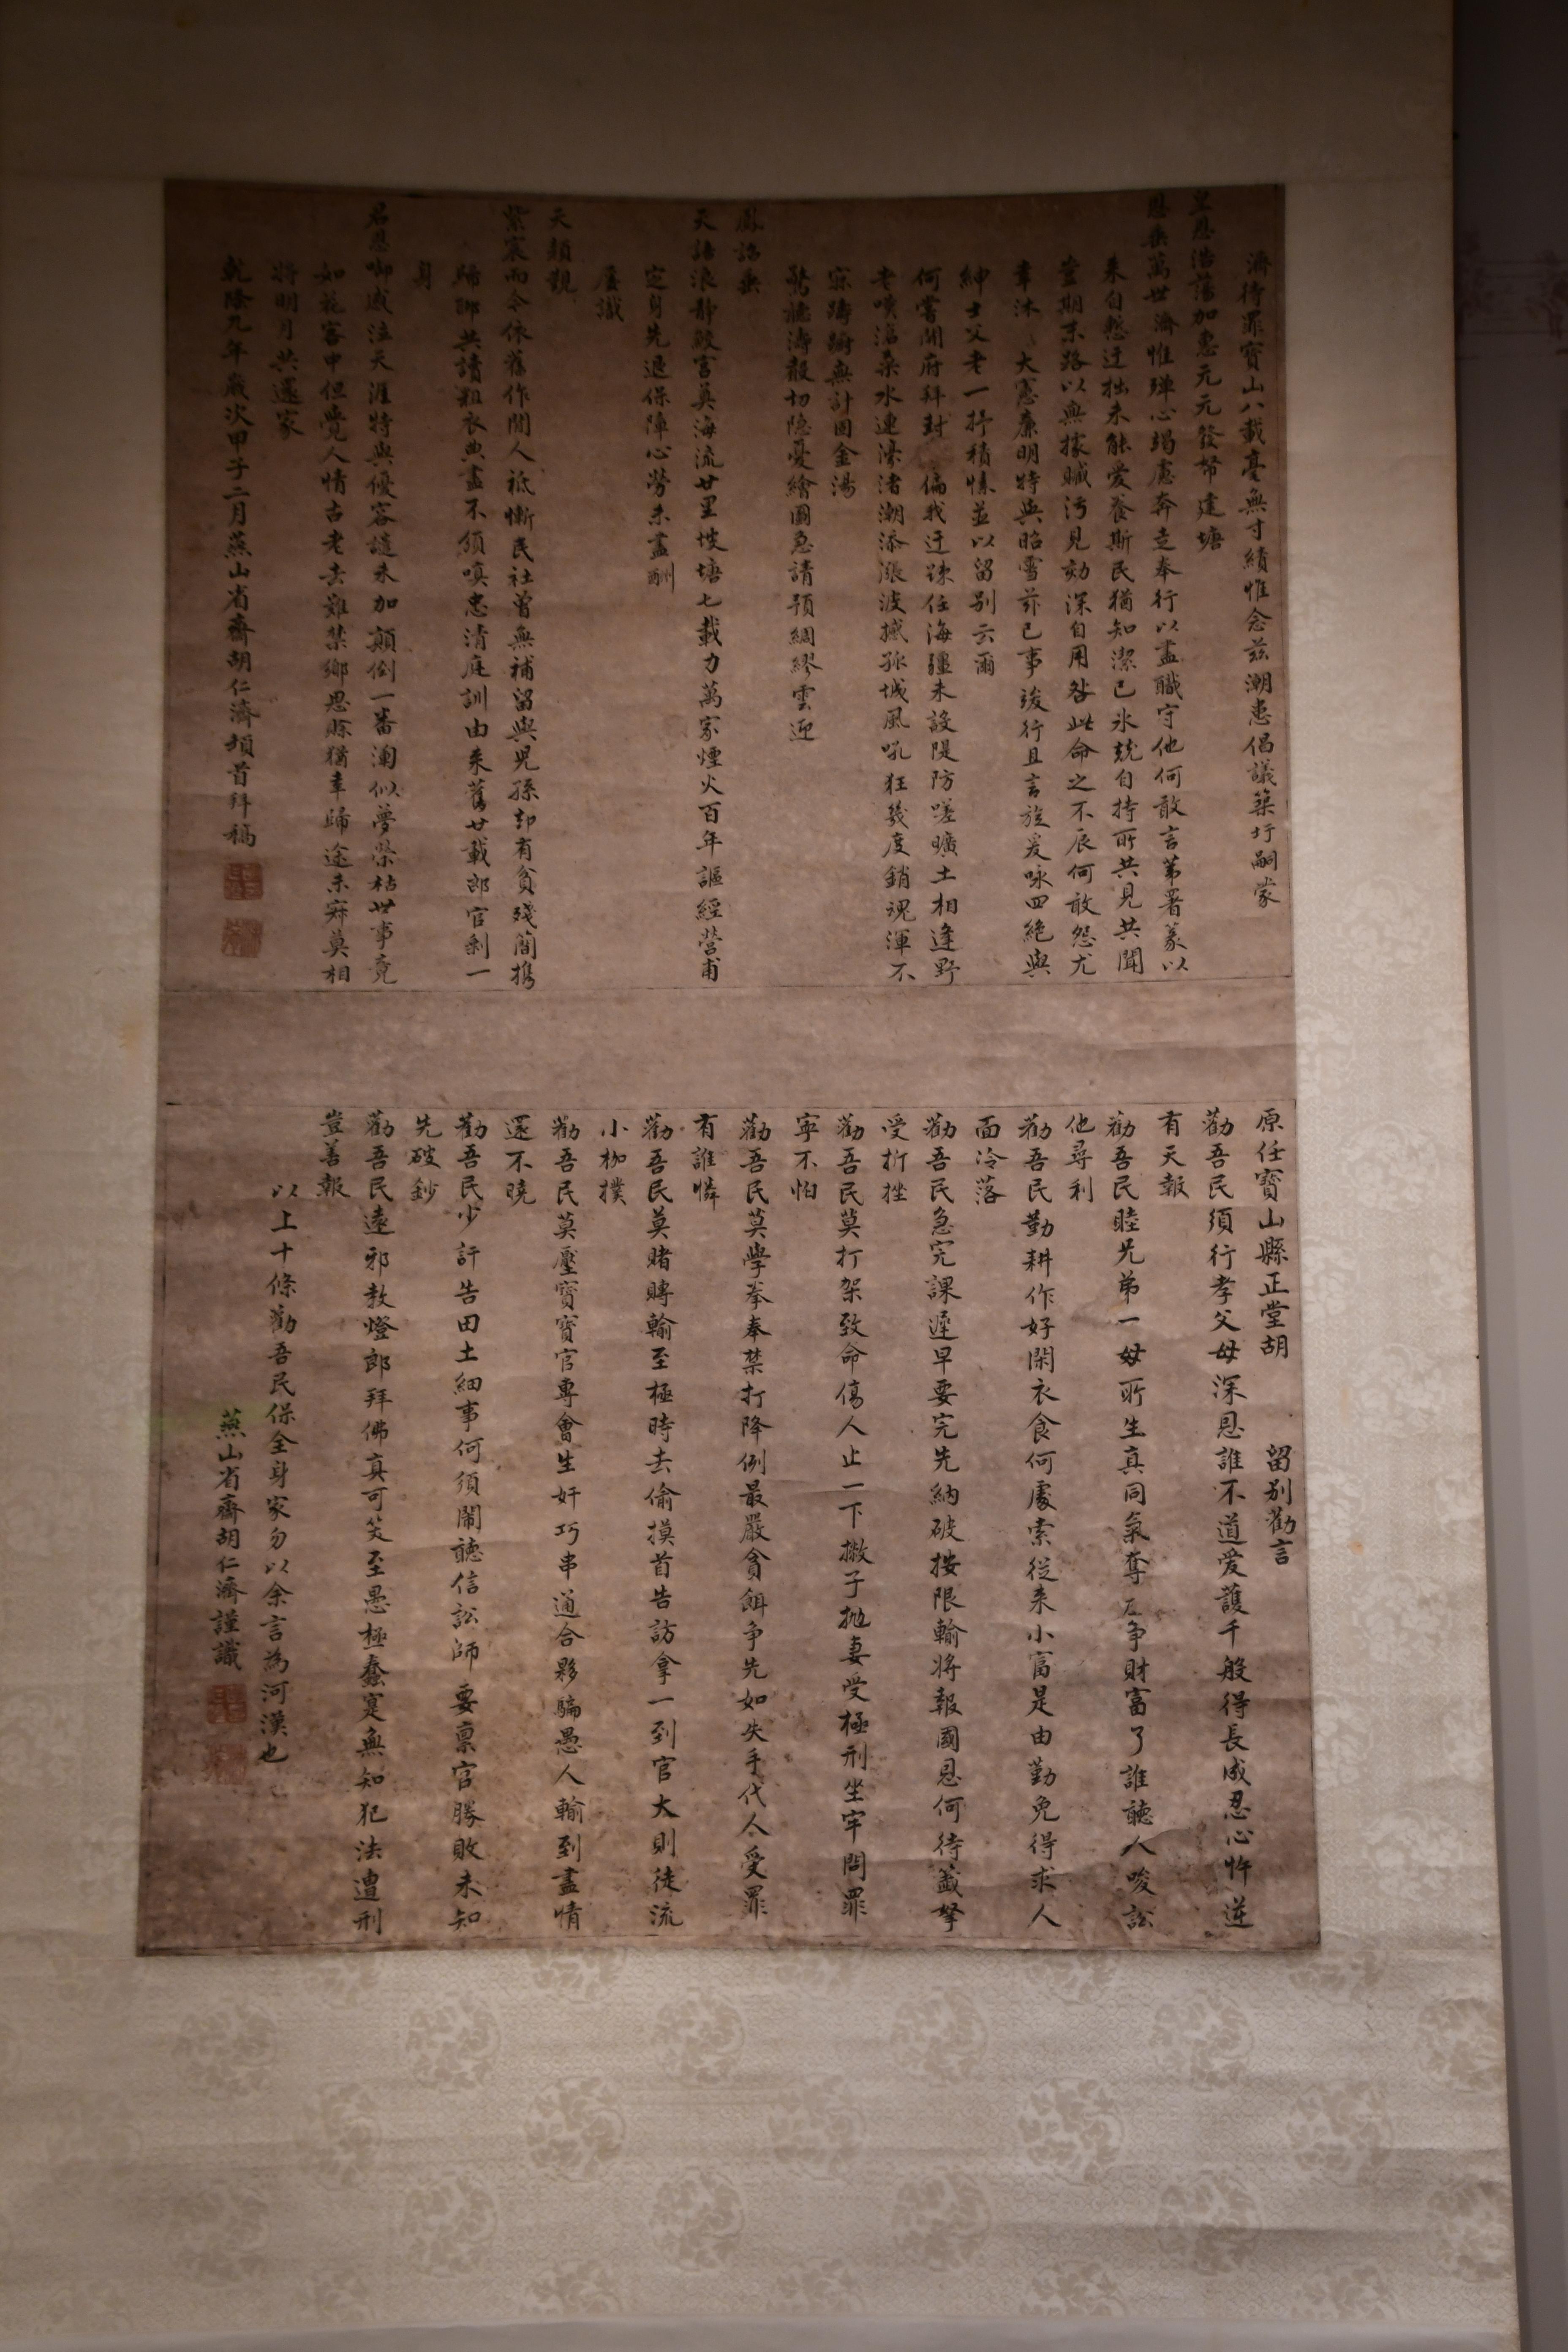 濟待罪寶山八載毫無寸績惟念茲潮患倡議築圩嗣蒙
皇恩浩蕩加惠元元發帑建塘
恩垂萬世濟惟殫心竭慮奔走奉行以盡職守他何敢言第署篆以
來自愁迂拙未能愛養斯民猶知潔己氷兢自持所共見共聞
豈期末路以無據贓污見劾深自用咎此命之不辰何敢怨尤
幸沐 大憲廉明特與昭雪茲已事竣行且言旋爰咏四絶與
紳士父老一抒積愫並以留別云爾
何嘗開府拜封 偏我迂疎任海疆未設隄防嗟曠土相逢野
老嘆滄桑水連濠渚潮添漲波撼孤城風吼狂幾度銷魂渾不
寐躊躇無計固金湯
驚聽濤聲切隱憂繪圖急請預綢繆雲迎
鳳詔垂
天語浪靜鮫宮奠海流廿里坡塘七載力萬家煙火百年謳經營甫
定身先退保障心勞未盡酬
屢識
天顏覲
紫宸而今休舊作閒人祗慚民社曾無補留與兒孫却有貧殘簡携
歸聊共讀粗衣典盡不須嗔忠清庭訓由來舊廿載郎官剩一
身
君恩啣感泣天涯特與優容譴未加顛倒一番渾似夢榮枯世事竟
如花客中但覺人情古老去難禁鄉思賒猶幸歸途未寂莫相
將明月共還家
乾隆九年歲次甲子二月燕山省齋胡仁濟頓首拜稿
原任寶山縣正堂胡 留別勸言
勸吾民須行孝父母深恩誰不道愛護千般得長成忍心忤逆
有天報
勸吾民睦兄弟一母所生真同氣奪產爭財富了誰聽人唆訟
他尋利
勸吾民勤耕作好閑衣食何處索從來小富是由勤免得求人
面冷落
勸吾民急完課遲早要完先納破按限輸將報國恩何待籤拏
受折挫
勸吾民莫打架致命傷人止一下撇子抛妻受極刑坐牢問罪
寧不怕
勸吾民莫學拳奉禁打降例最嚴貪餌爭先如失手代人受罪
有誰憐
勸吾民莫賭賻輸至極時去偷摸首告訪拿一到官大則徒流
小枷撲
勸吾民莫壓寶寶官專會生奸巧串通合夥騙愚人輸到盡情
還不曉
勸吾民少訐告田土細事何須鬧聽信訟師要稟官勝敗未知
先破鈔
勸吾民遠邪教燈郎拜佛真可笑至愚極蠢寔無知犯法遭刑
豈善報
以上十條勸吾民保全身家勿以余言為河漢也
燕山省齋胡仁濟謹識